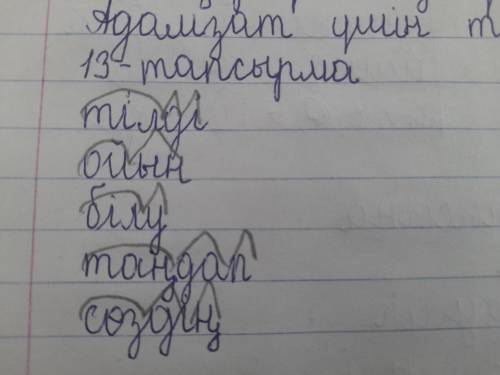 Адамзат үшін т
13-тапсырма
тілді
ойын
білу
таңдап
сөздің